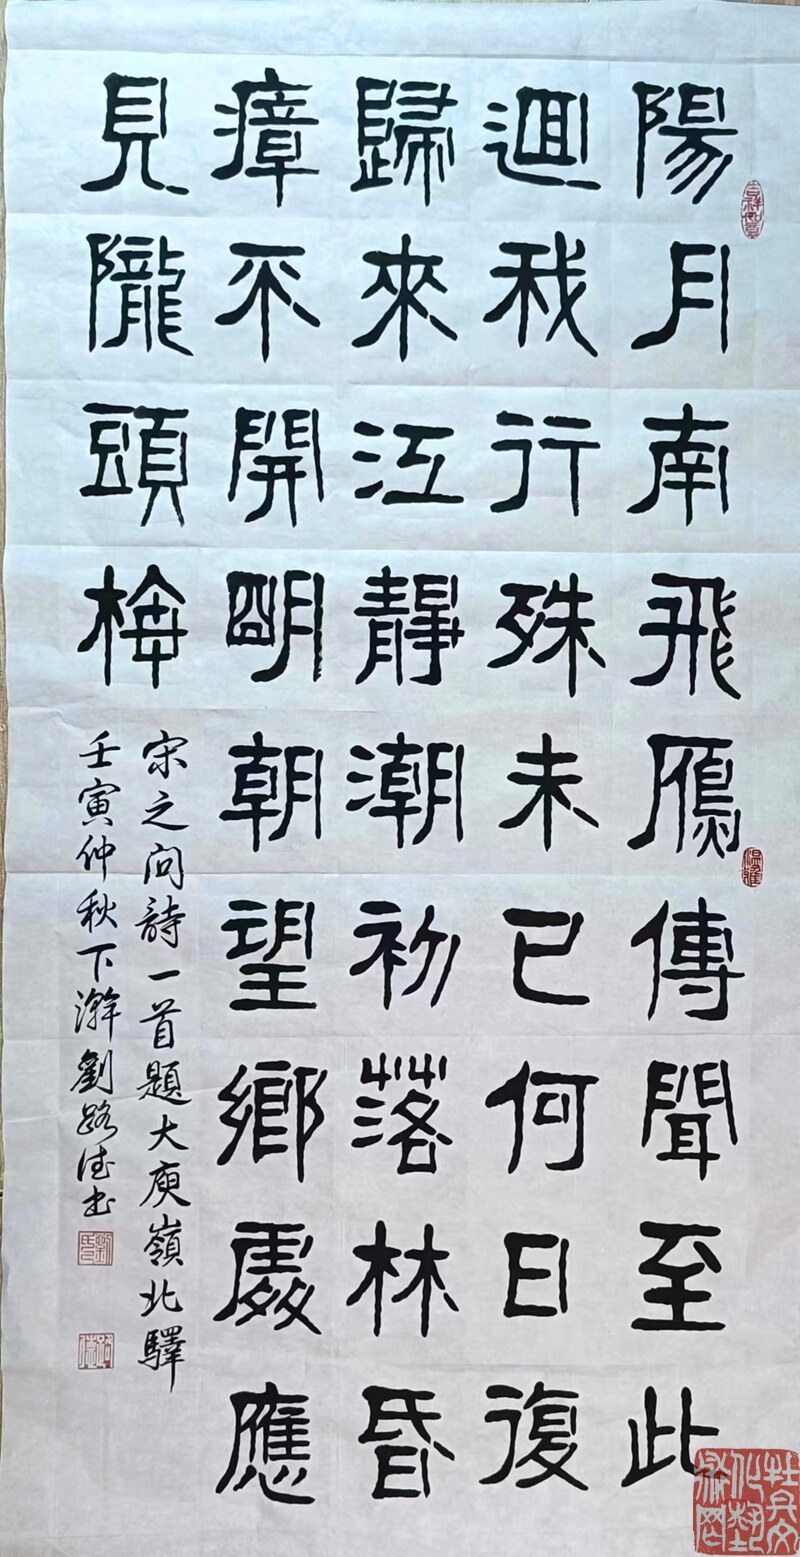 陽月南飛鴈傳聞至此
迴我行殊未已何日復
歸來江靜潮初落林昏
瘴不開明朝望鄉處應
見隴頭梅
宋之问詩一首題大庾嶺北驛
壬寅仲秋下澣劉路德书
吉祥如意
温雅